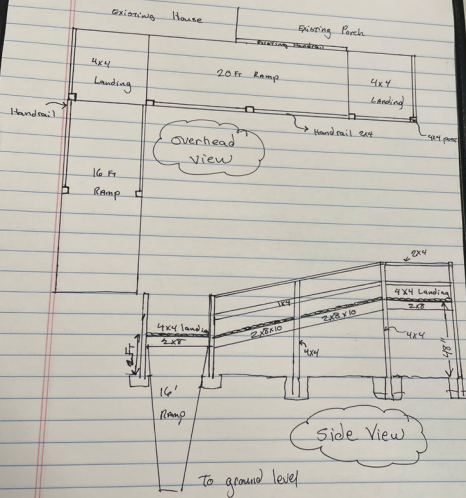 Existing House
Existing Porch
Existing Handrail
4x4
Landing
20 Ft Ramp
4x4
Landing
Handrail
Handrail 2x4
4x4 post
Overhead
View
16 Ft
Ramp
2x4
4x4 Landing
2x8
1x4
2x8x10
2x8x10
4x4 landing
2x8
4x4
4x4
48"
16'
Ramp
Side View
To ground level